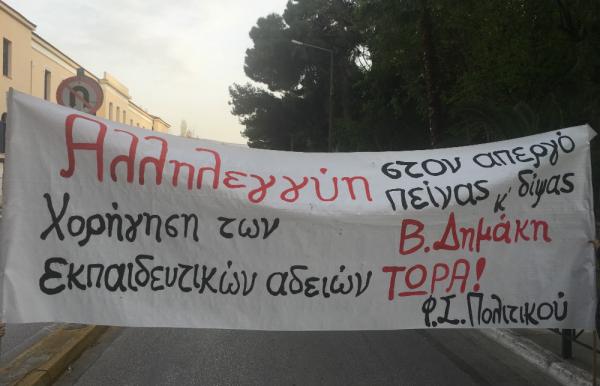 Αλληλεγγύη στον απεργό
πείνας κ' δίψας
Χορήγηση των Β. Δημάκη
εκπαιδευτικών αδειών ΤΩΡΑ!
Φ.Σ. Πολιτικού